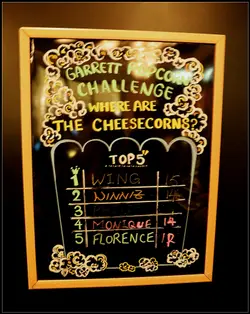 GARRETT POPCORN
CHALLENGE
WHERE ARE
THE CHEESECORNS?
TOP 5
1 WING 15
2 NINNIZ 14
3
4 MONIQUE 14
5 FLORENCE 12